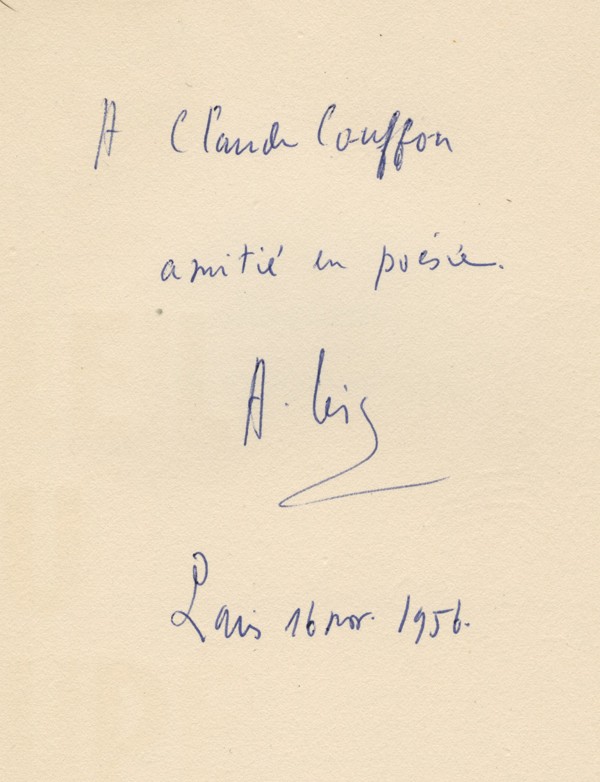 A Claude Couffon
amitié en poésie.
A.
Paris 16 nov. 1956.